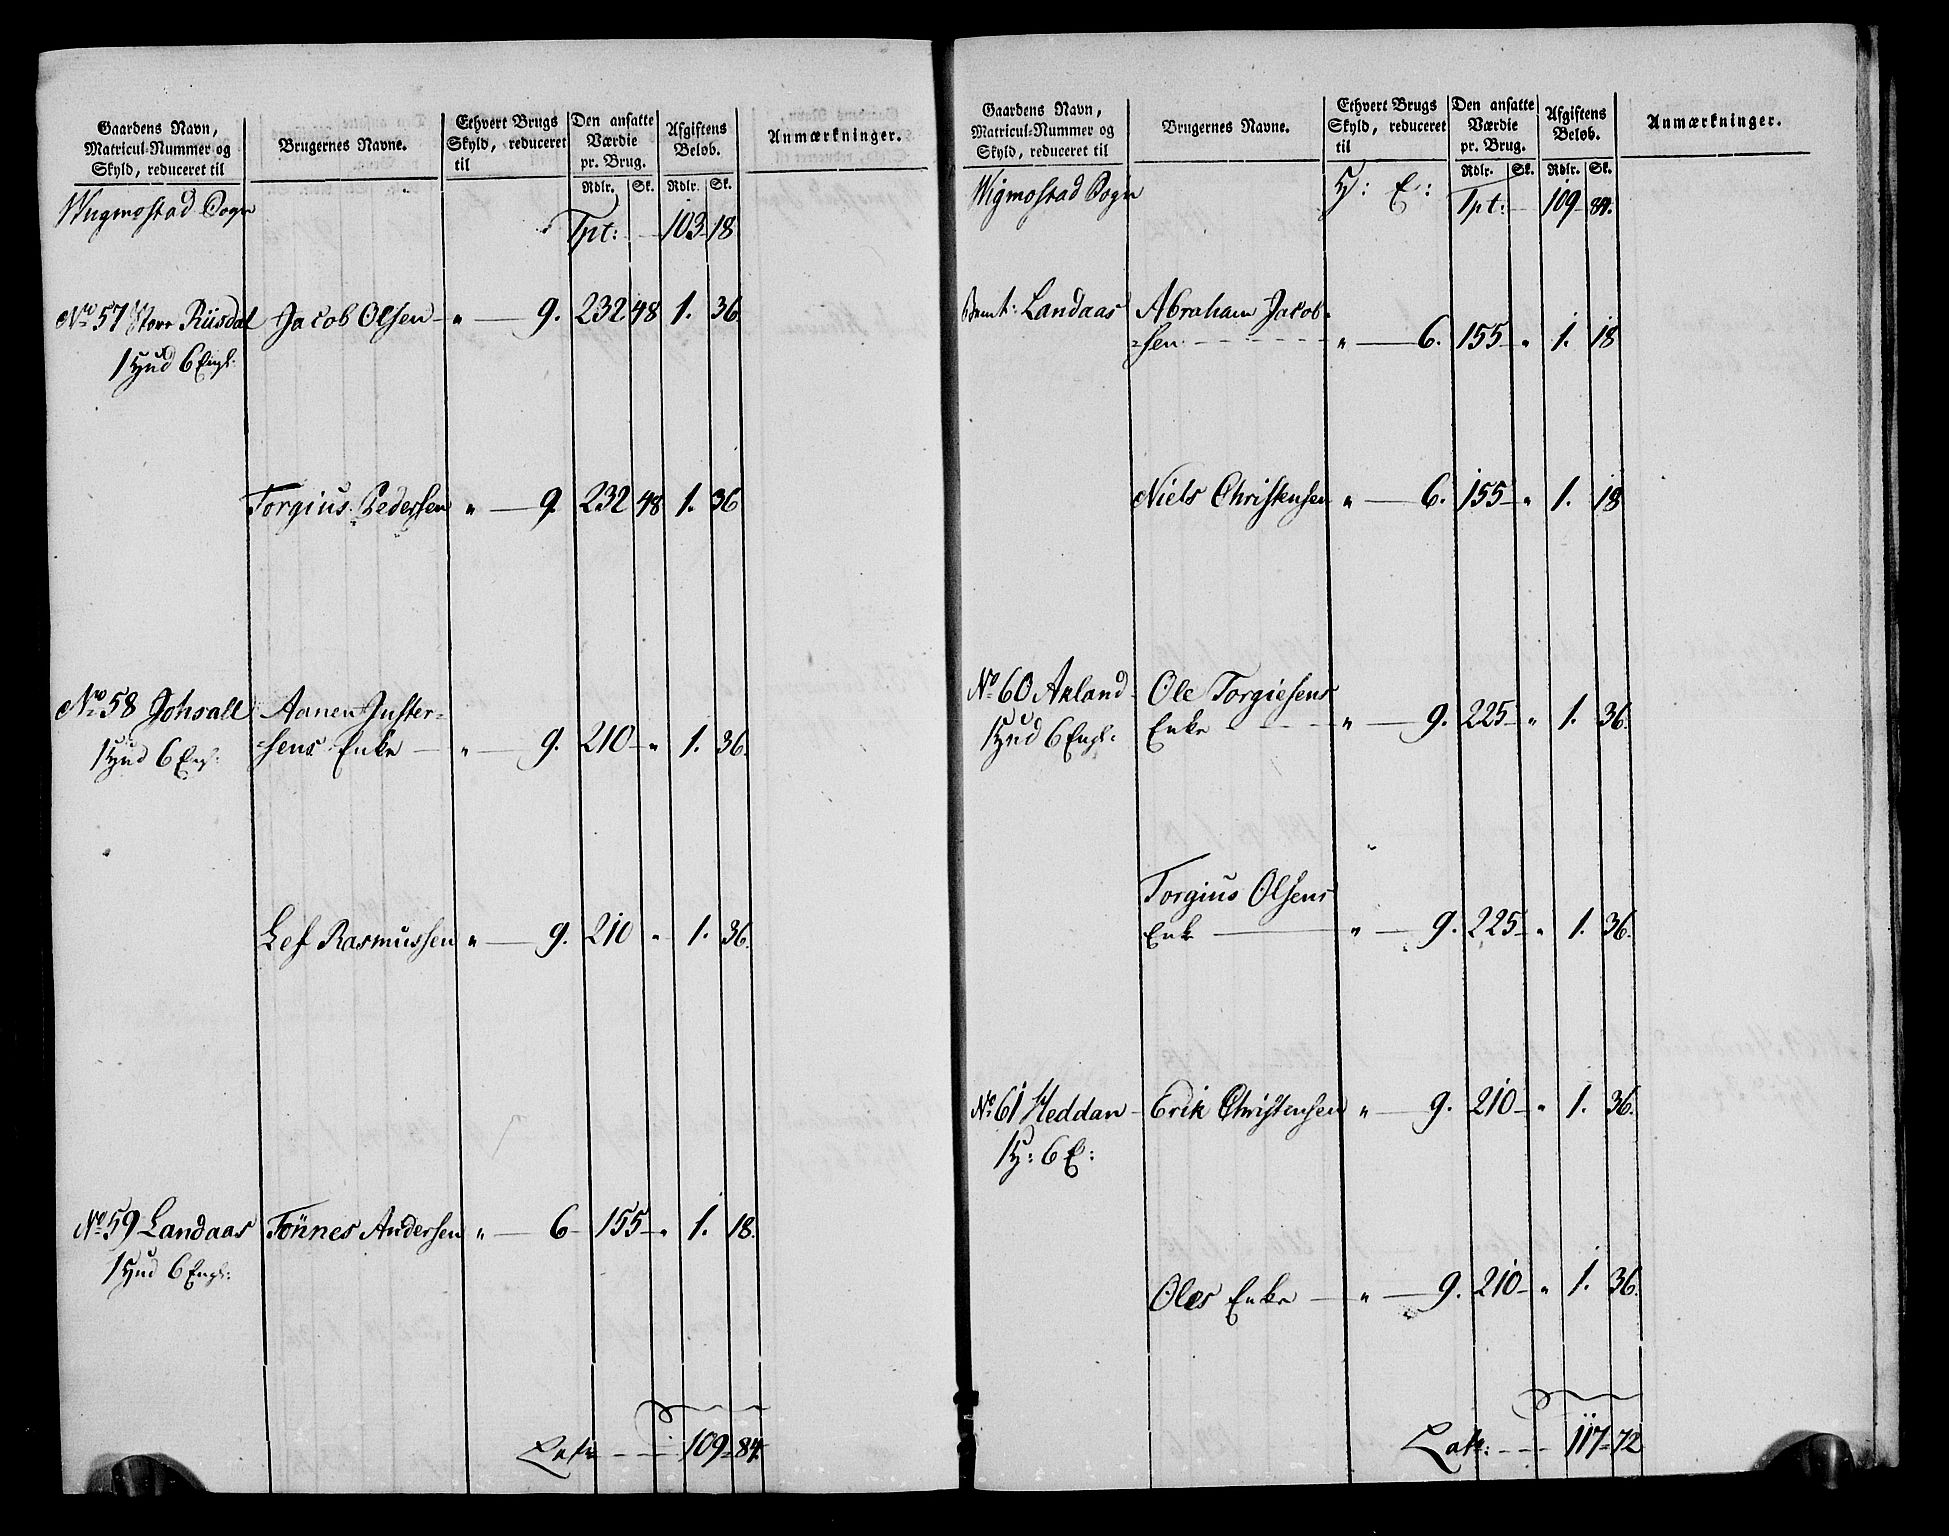 Gaardens Navn, Matricul-Nummer og Skyld, reduceret til | Brugernes Navne. | Ethvert Brugs Skyld, reduceret til | Den ansatte Værdie pr. Brug. | Afgiftens Beløb. | Anmærkninger.
Rdlr. Sk. Rdlr. Sk.
Wigmostad Sogn
Tpt: 103 18
No 57 Riisdal Jacob Olsen " 9. 232 48 1. 36.
1 Hud 6 Engl:
Torgius Pedersen " 9. 232 48 1. 36
No 58 Aanen Juster-
1 Hud 6 Eng: sens Enke " 9. 210 " 1. 36.
Lef Rasmussen " 9. 210 " 1. 36.
No 59 Landaas Tönnes Andersen " 6 155 " 1. 18.
1 Hud 6 Engl:
Late 109 84.
Gaardens Navn, Matricul-Nummer og Skyld, reduceret til | Brugernes Navne. | Ethvert Brugs Skyld, reduceret til | Den ansatte Værdie pr. Brug. | Afgiftens Beløb. | Anmærkninger.
Rdlr. Sk. Rdlr. Sk.
Wigmostad Sogn H: E: Tpt: 109 84.
Landaas Abraham Jacob-
sen " 6. 155 " 1. 18
Niels Christensen " 6. 155 " 1. 18
No 60 Ole Torgiesens
1 Hud 6 Engl: Enke " 9. 225 " 1. 36.
Torgius Olsens
Enke " 9. 225 " 1. 36.
No 61 Heddan Erik Christensen " 9. 210 " 1. 36.
1 H: 6 E:
Oles Enke " 9. 210 " 1. 36.
Late: 117 72